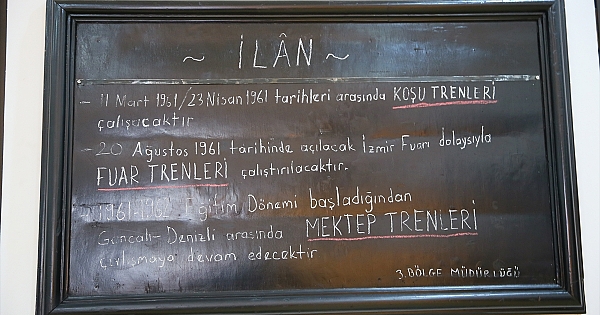 ~ İLÂN ~
- 11 Mart 1961/23 Nisan 1961 tarihleri arasında KOŞU TRENLERİ
çalışacaktır
- 20 Ağustos 1961 tarihinde açılacak İzmir Fuarı dolaysıyla
FUAR TRENLERİ çalıştırılacaktır.
- 1961-1962 Eğitim Dönemi başladığından
Goncalı-Denizli arasında MEKTEP TRENLERİ
çalışmaya devam edecektir
3.BÖLGE MÜDÜRLÜĞÜ